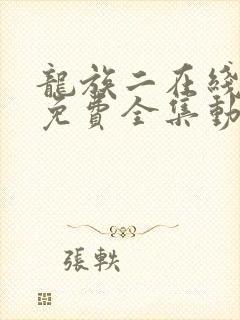 龍族二在綫
免費全集動
張軼